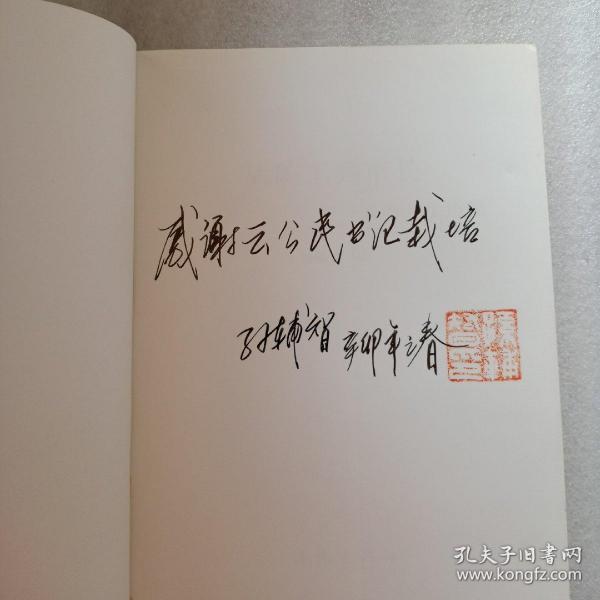 感谢云公民书记栽培
孙辅智 辛卯年立春
孔夫子旧书网
www.kongfz.com